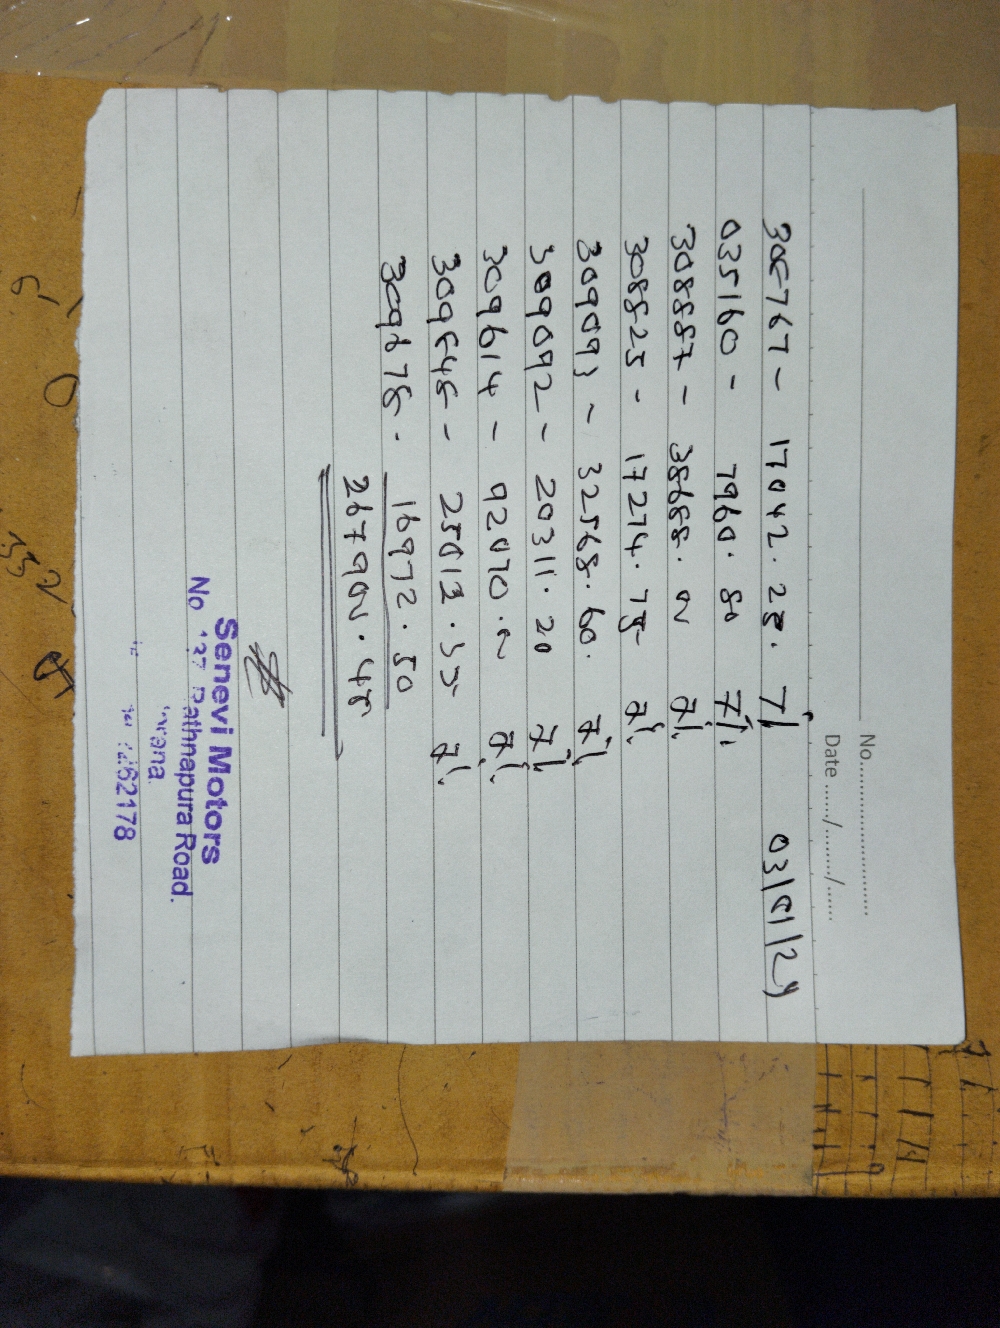 No.
Date ....../......./......
03/01/24
306767 - 17042.25. 7%
035160 - 7960.80 7%
308887 - 38688.00 7%
308825 - 17274.75 7%
309093 - 32568.60. 7%
309092 - 20311.20 7%
309614 - 92070.00 7%
309648 - 25013.35 7%
309678. 16972.50
267901.45
Senevi Motors
No 137 Rathnapura Road.